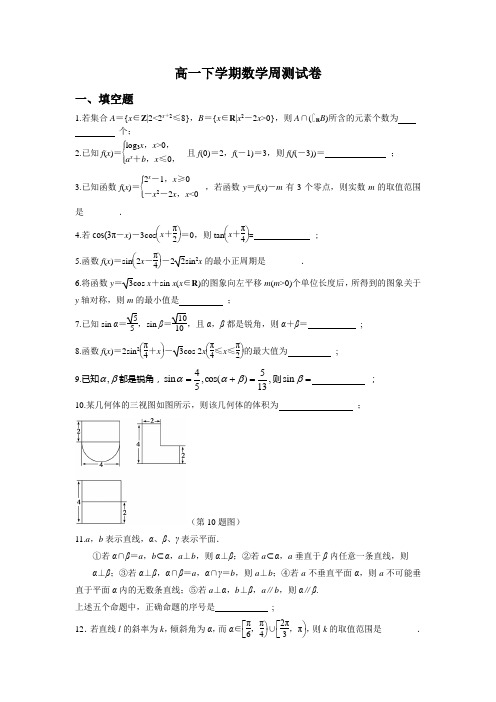 高一下学期数学周测试卷
一、填空题
1.若集合 A={x∈Z|2<2^{x+2}≤8},B={x∈R|x²-2x>0},则 A∩(∁_R B)所含的元素个数为
____ 个;
2.已知 f(x)={log₃x,x>0, a^x+b,x≤0, 且 f(0)=2,f(-1)=3,则 f(f(-3))=____ ;
3.已知函数 f(x)={2^x-1,x≥0 -x²-2x,x<0 ,若函数 y=f(x)-m 有 3 个零点,则实数 m 的取值范围
是____.
4.若 cos(3π-x)-3cos(x+π/2)=0,则 tan(x+π/4)=____ ;
5.函数 f(x)=sin(2x-π/4)-2√2sin²x 的最小正周期是____.
6.将函数 y=√3cos x+sin x(x∈R)的图象向左平移 m(m>0)个单位长度后,所得到的图象关于
y 轴对称,则 m 的最小值是____ ;
7.已知 sin α=√5/5,sin β=√10/10,且 α,β 都是锐角,则 α+β=____ ;
8.函数 f(x)=2sin²(π/4+x)-√3cos 2x(π/4≤x≤π/2)的最大值为____ ;
9.已知α,β都是锐角,sinα=4/5,cos(α+β)=5/13,则sinβ=____ ;
10.某几何体的三视图如图所示,则该几何体的体积为____ ;
2
2
4
4
2
4
2
(第 10 题图)
11.a,b 表示直线,α、β、γ 表示平面.
①若 α∩β=a,b⊂α,a⊥b,则 α⊥β;②若 a⊂α,a 垂直于 β 内任意一条直线,则
α⊥β;③若 α⊥β,α∩β=a,α∩γ=b,则 a⊥b;④若 a 不垂直平面 α,则 a 不可能垂
直于平面 α 内的无数条直线;⑤若 a⊥α,b⊥β,a∥b,则 α∥β.
上述五个命题中,正确命题的序号是____ ;
12.若直线 l 的斜率为 k,倾斜角为 α,而 α∈[π/6,π/4)∪[2π/3,π),则 k 的取值范围是____.